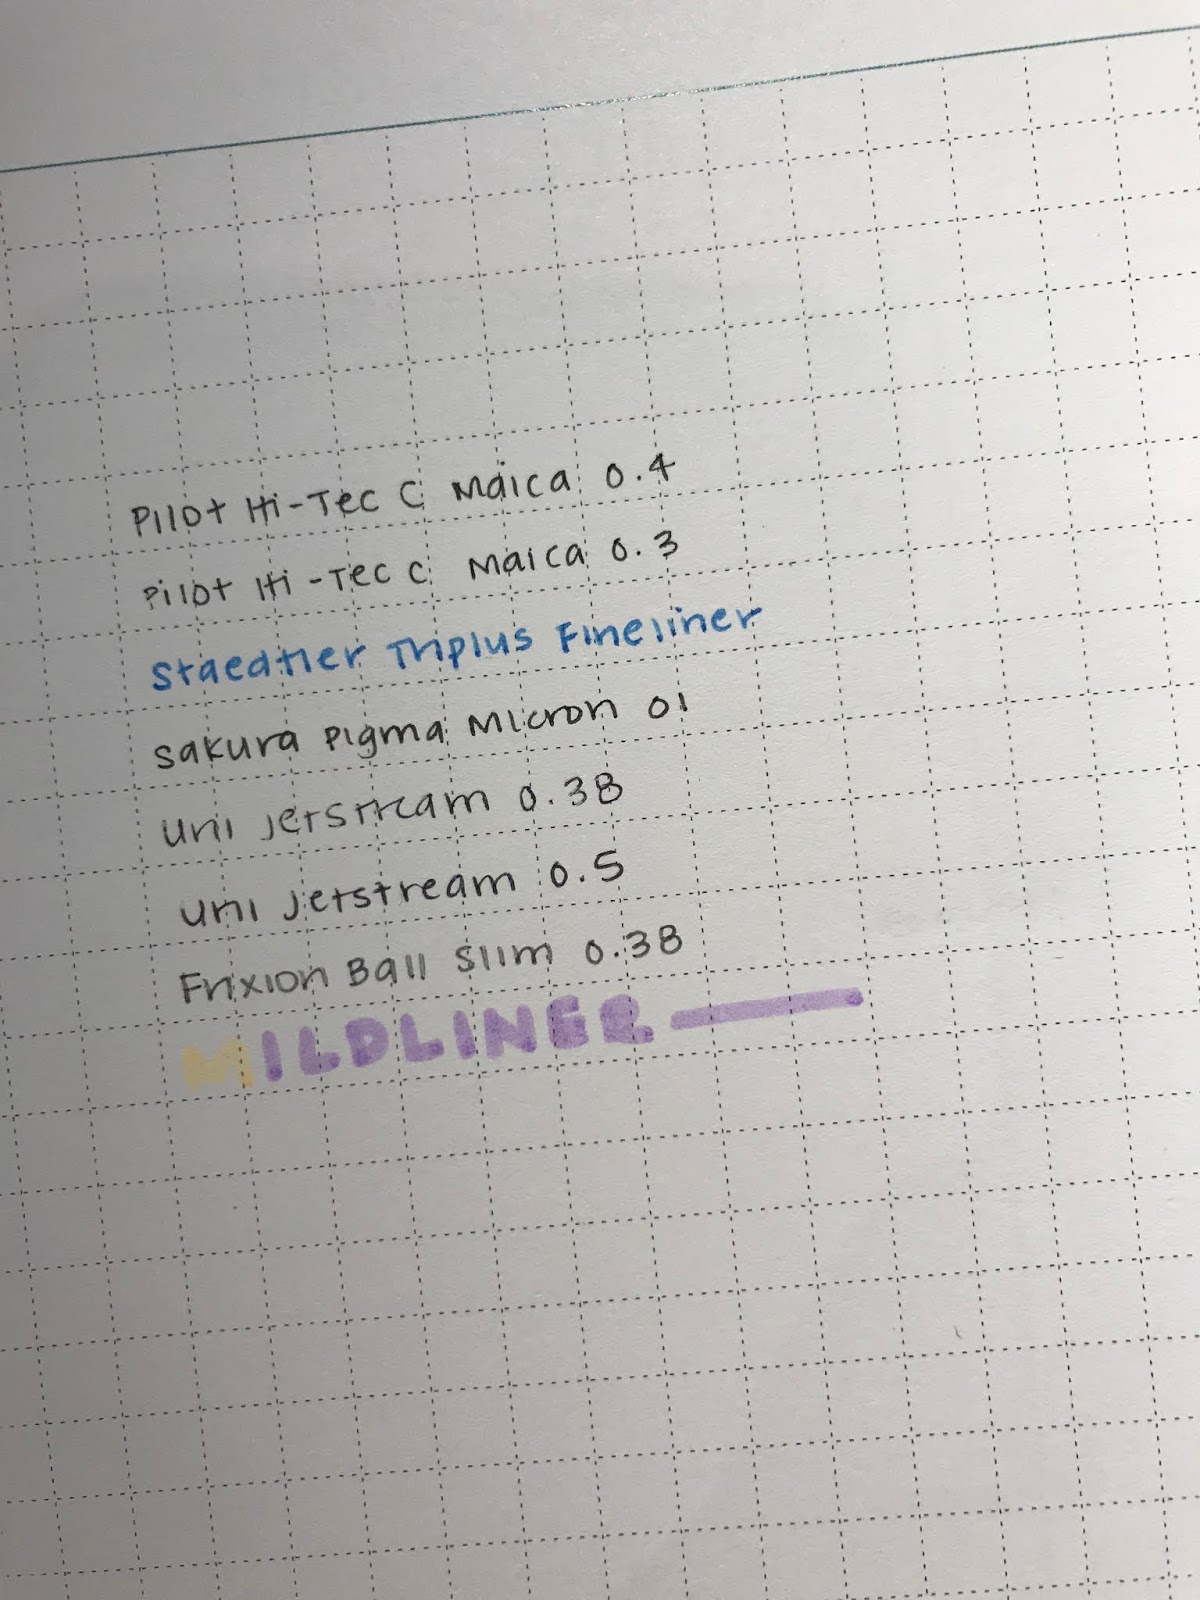 Pilot Hi-Tec C Maica 0.4
Pilot Hi-Tec C Maica 0.3
Staedtler Triplus Fineliner
Sakura Pigma Micron 01
Uni Jetstream 0.38
Uni Jetstream 0.5
Frixion Ball Slim 0.38
MILDLINER